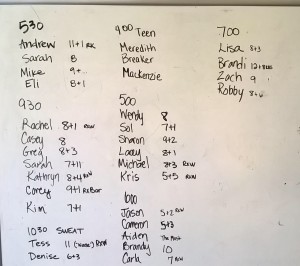 530
Andrew 11+1 RX
Sarah 8
Mike 9+
Eli 8+1
930
Rachel 8+1 RW
Casey 8
Greg 8+3
Sarah 7+11
Kathryn 8+4 RW
Corey 9+1
Kim 7+1
1030 SWEAT
Tess 11
Denise 6+3
400 Teen
Meredith
Breaker
Mackenzie
500
Wendy 8
Sol 7+1
Sharon 9+2
Lacey 8+1
Michael 8+3 RW
Kris 5+5 RW
600
Jason 5+2 RW
Cameron 5+3
Aiden
Brandy 10
Carla 7 RW
700
Lisa 8+3
Brandi
Zach 9
Robby